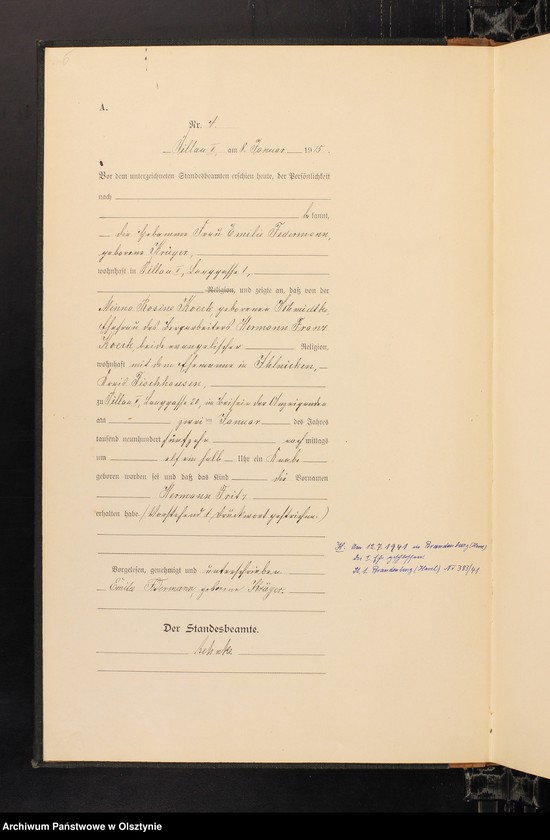 A.
Nr. 4.
Pillau I, am 8. Januar 1915.
Vor dem unterzeichneten Standesbeamten erschien heute, der Persönlichkeit
nach
be kannt,
die Hebamme Frau Emilie Federmann,
geborene Krüger,
wohnhaft in Pillau I, Langgasse 1,
Religion, und zeigte an, daß von der
Minna Rosine Koerk, geborenen Schmidtke,
Ehefrau des Hermann Franz
Koerk, beide evangelischer Religion,
wohnhaft mit dem Ehemanne in
Kreis Fischhausen,
zu Pillau I, Langgasse 20, in Beisein der Anzeigenden
am zwei ten Januar des Jahres
tausend neunhundert fünfzehn nach mittags
um elf ein halb Uhr ein Knabe
geboren worden sei und daß das Kind die Vornamen
Hermann Fritz
erhalten habe. (Vorstehend 1 Druckwort gestrichen.)
Vorgelesen, genehmigt und unterschrieben
Emilie Federmann, geborene Krüger.
Der Standesbeamte.
H. Am 12.7.1941 in Brandenburg (Havel)
die I. Ehe geschlossen
St. A. Brandenburg (Havel) Nr 381/41
Archiwum Państwowe w Olsztynie